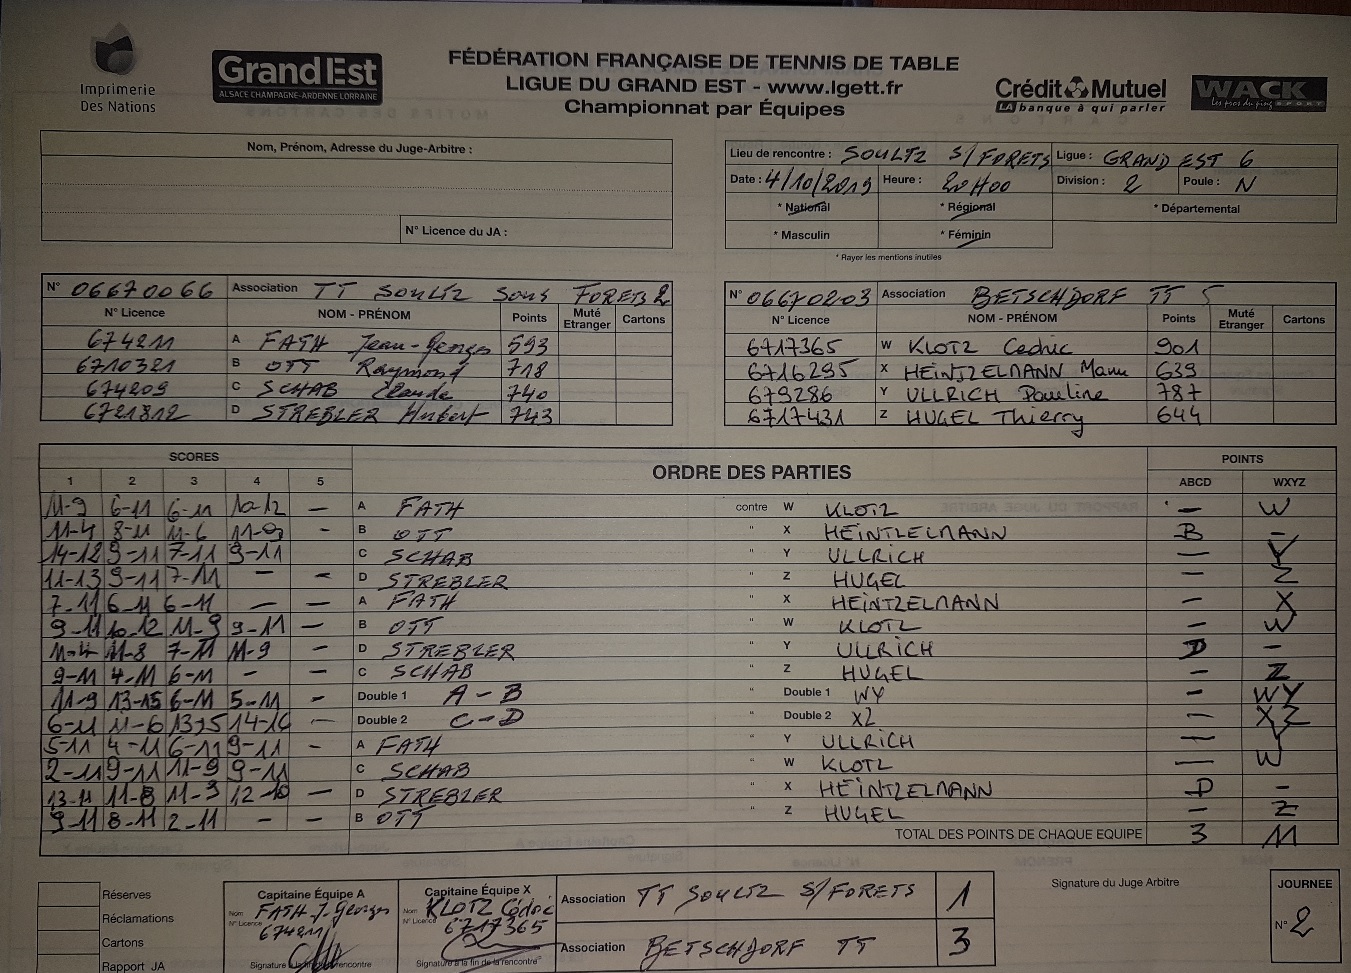 Imprimerie
Des Nations
GrandEst
ALSACE CHAMPAGNE-ARDENNE LORRAINE
FÉDÉRATION FRANÇAISE DE TENNIS DE TABLE
LIGUE DU GRAND EST - www.lgett.fr
Championnat par Équipes
Crédit Mutuel
LA banque à qui parler
WACK
les pros du ping SPORT
Nom, Prénom, Adresse du Juge-Arbitre :
N° Licence du JA :
Lieu de rencontre : SOULTZ S/FORETS Ligue : GRAND EST 6
Date : 4/10/2019 Heure : 20H00 Division : 2 Poule : N
* National * Régional * Départemental
* Masculin * Féminin
* Rayer les mentions inutiles
N° 06670066 Association TT SOULTZ Sous FORETS 2
N° Licence NOM - PRÉNOM Points Muté Etranger Cartons
674211 A FATH Jean-Georges 593
6710321 B OTT Raymond 718
674209 C SCHAB Claude 740
6721812 D STREBLER Hubert 743
N° 06670203 Association BETSCHDORF TT 5
N° Licence NOM - PRÉNOM Points Muté Etranger Cartons
6717365 W KLOTZ Cédric 901
6716295 X HEINTZELMANN Manu 639
679286 Y ULLRICH Pauline 787
6717431 Z HUGEL Thierry 644
SCORES ORDRE DES PARTIES POINTS
1 2 3 4 5 ABCD WXYZ
11-9 6-11 6-11 10-12 – A FATH contre W KLOTZ – W
11-4 8-11 11-6 11-9 – B OTT " X HEINTZELMANN B –
14-12 9-11 7-11 9-11 C SCHAB " Y ULLRICH – Y
11-13 9-11 7-11 – – D STREBLER " Z HUGEL – Z
7-11 6-11 6-11 – – A FATH " X HEINTZELMANN – X
9-11 10-12 11-9 9-11 – B OTT " W KLOTZ – W
11-4 11-8 7-11 11-9 – D STREBLER " Y ULLRICH D –
9-11 4-11 6-11 – – C SCHAB " Z HUGEL – Z
11-9 13-15 6-11 5-11 – Double 1 A - B " Double 1 WY – WY
6-11 11-6 13-15 14-16 – Double 2 C - D " Double 2 XZ – XZ
5-11 4-11 6-11 9-11 – A FATH " Y ULLRICH – Y
2-11 9-11 11-9 9-11 C SCHAB " W KLOTZ – W
13-11 11-8 11-3 12-10 – D STREBLER " X HEINTZELMANN D –
9-11 8-11 2-11 – – B OTT " Z HUGEL – Z
TOTAL DES POINTS DE CHAQUE EQUIPE 3 11
Réserves
Réclamations
Cartons
Rapport JA
Capitaine Équipe A
Nom FATH J. Georges
N° Licence 674211
Signature à la fin de la rencontre
Capitaine Équipe X
Nom KLOTZ Cédric
N° Licence 6717365
Signature à la fin de la rencontre
Association TT SOULTZ S/FORETS 1
Association BETSCHDORF TT 3
Signature du Juge Arbitre
JOURNEE
N° 2